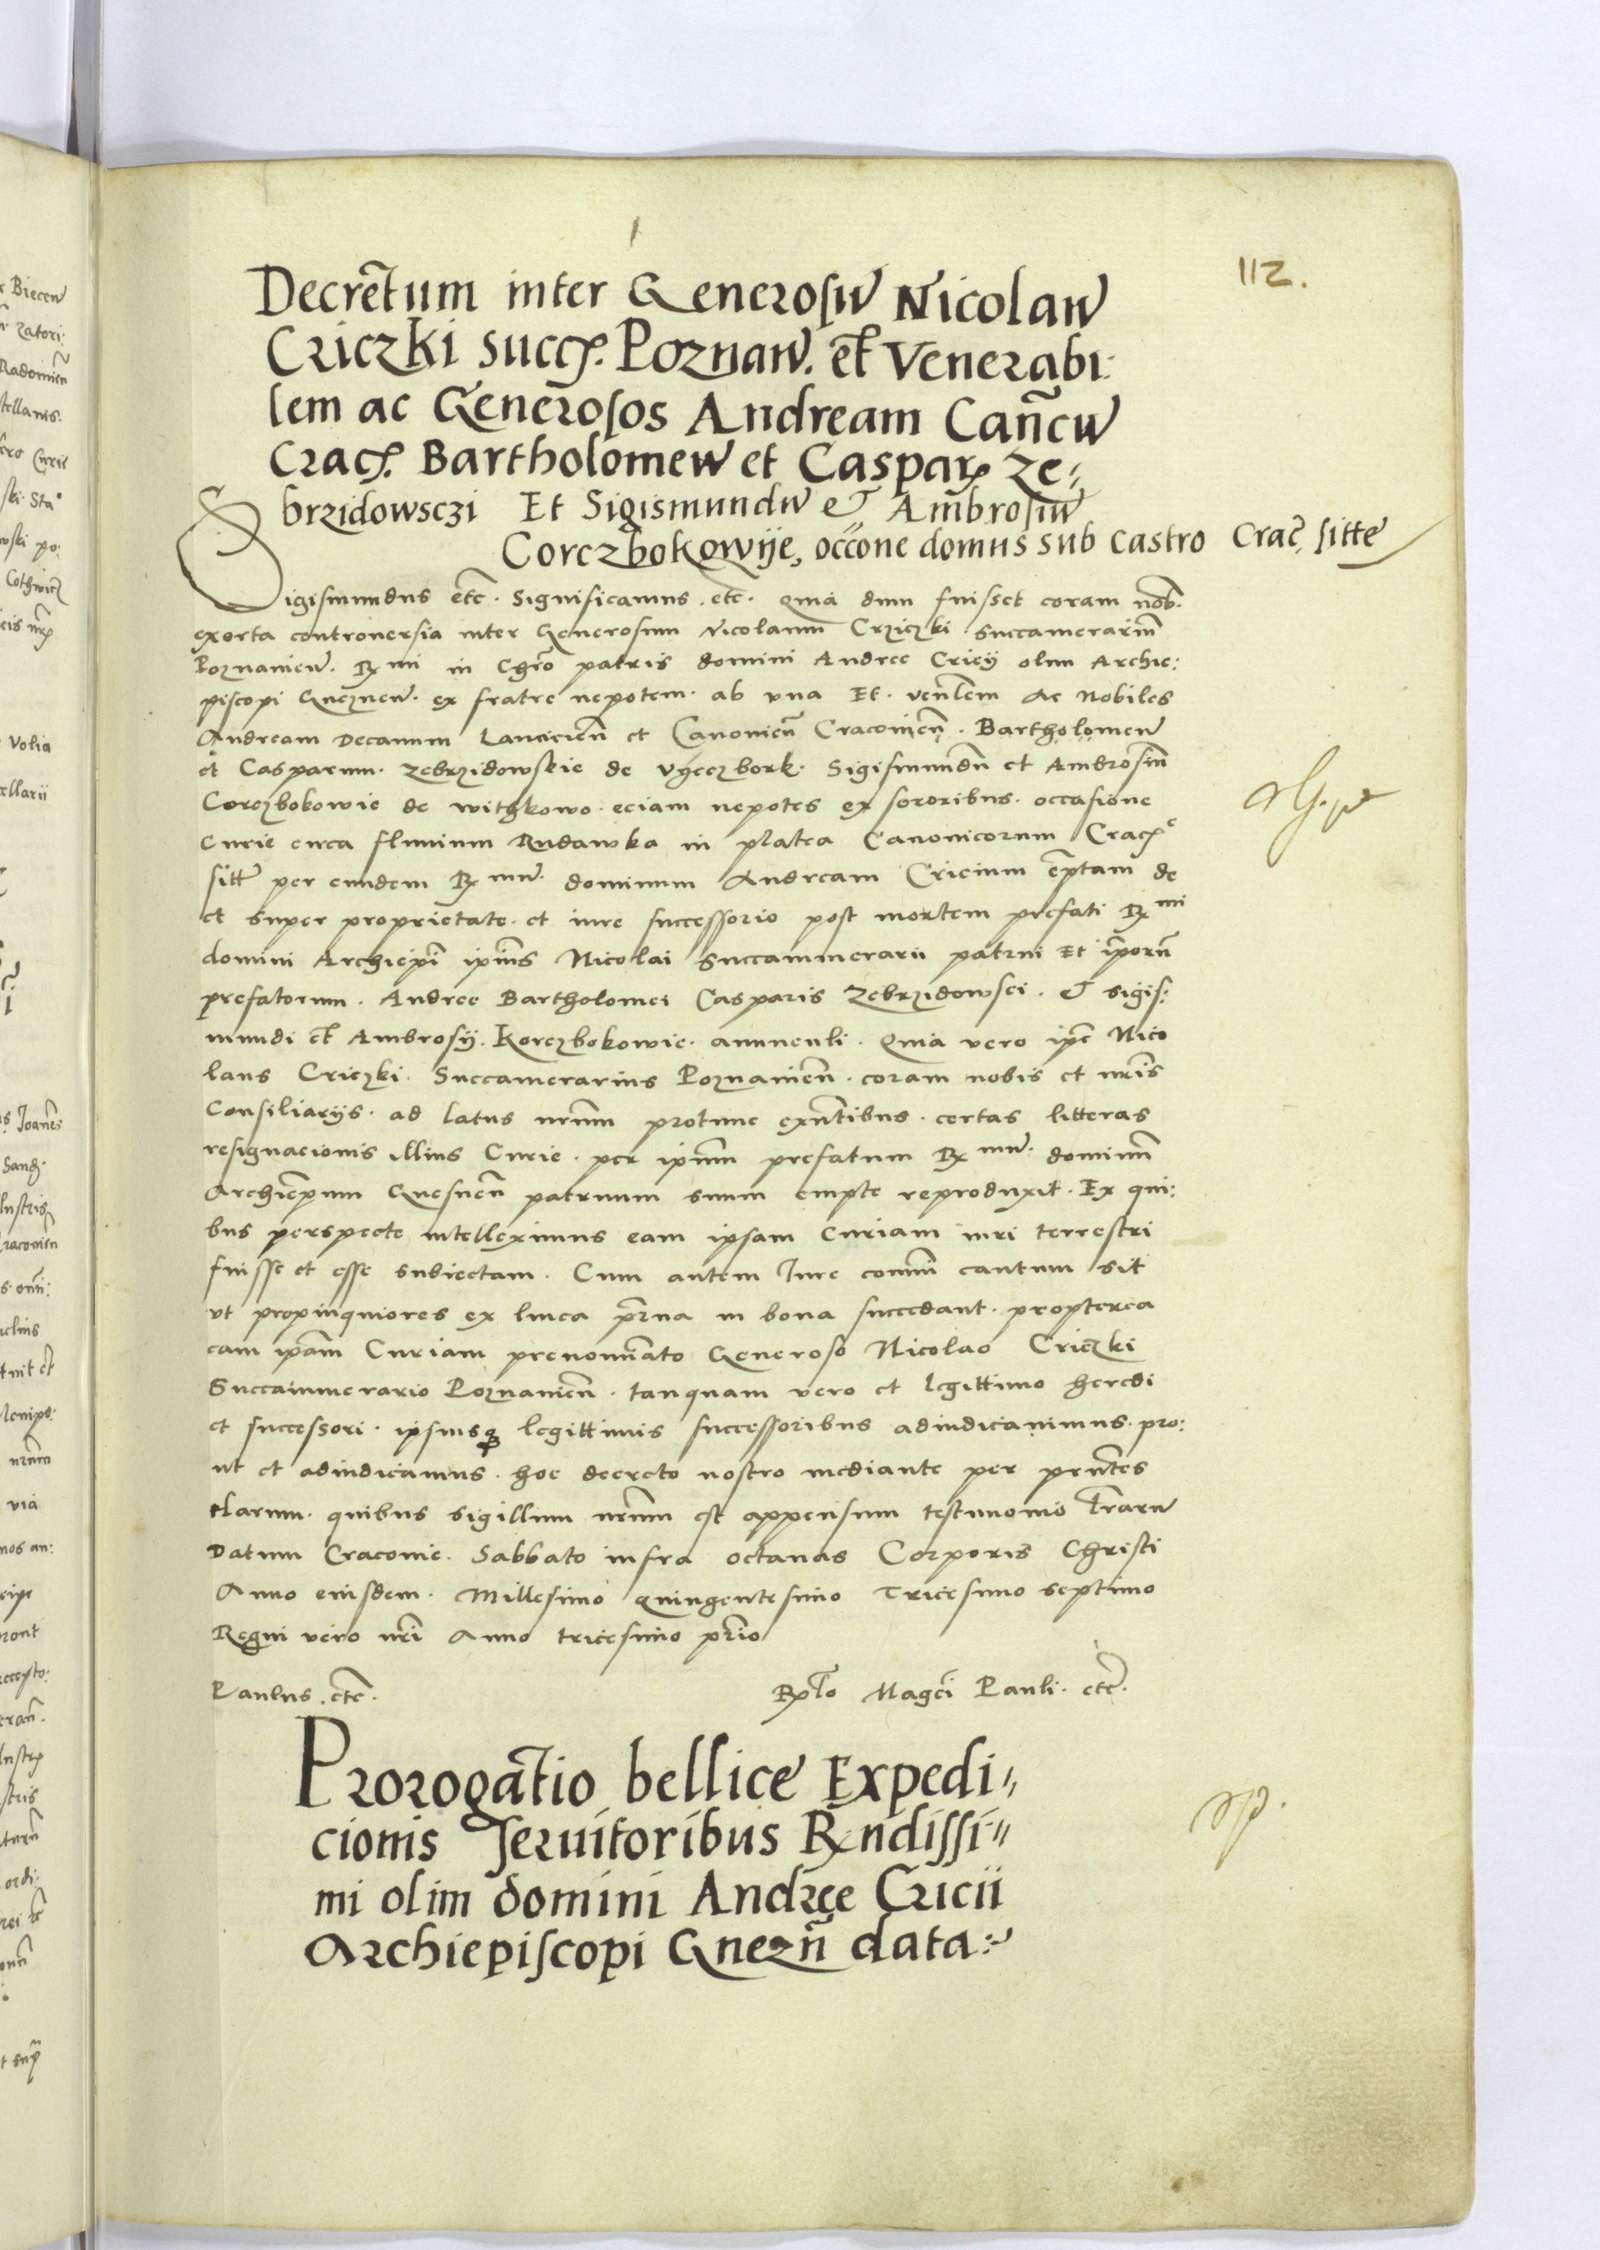 112.
Decretum inter Generosũ Nicolaũ
Criczki succ. Poznań. et Venerabi:
lem ac Generosos Andream Canñcũ
Crac. Bartholomeũ et Caspar Ze,
brzidowsczi Et Sigismundũ & Ambrosiũ
Corczbokowÿe, occōne domus sub castro Crac̃ sitte
Sigismundus etc̃. Significamus. etc̃. Quia dum fuisset coram nob̃.
exorta controuersia inter Generosum Nicolaum Crziczki succamerariũ
Poznanień. Rmi in Chr̃o patris domini Andree Cricij olim Archie:
piscopi Gneznen̄. ex fratre nepotem. ab vna Et. ven̄lem Ac Nobiles
Andream Decanum Lancicień et Canonicũ Cracouień. Bartholomeũ
et Casparum. Zebrzidowskie de Vÿeczbork. Sigismundũ et Ambrosiũ
Corczbokowie de withkowo. eciam nepotes ex sororibus. occasione
Curie circa fluuium Rudawka in platea Canonicorum Crac
sitt̃ per eundem R mũ. dominum Andream Cricium emptam de
et super proprietate. et iure successorio post mortem prefati R mi
domini Archiepĩ ipĩus Nicolai Succammerarii patrui Et ip̃orũ
prefatorum. Andree Bartholomei Casparis Zebrzidowsci. & sigis:
mundi et Ambrosÿ. Korczbokowie. auunculi. Quia vero ip̃e Nico
laus Criczki. Succamerarius Poznanień. coram nobis et nr̃is
Consiliarÿs. ad latus nrũm protunc exñtibus. certas litteras
resignacionis illius Curie. per ipũm prefatum R mũ. dominũ
Archiep̃um Gnesneñ patruum suum empte reproduxit. Ex qui:
bus perspecte intelleximus eam ipsam Curiam iuri terrestri
fuisse et esse subiectam. Cum autem Iure com̃i cautum sit
vt propinquiores ex linea p̃rna in bona succedant. propterea
eam ip̃am Curiam prenomĩato Generoso Nicolao Criczki
Succammerario Poznanień. tanquam vero et legittimo heredi
et successori. ipsiusq̃ legittimis successoribus adiudicauimus. pro:
ut et adiudicamus. hoc decreto nostro mediante per pñtes
Harum. quibus sigillum nrũm est appensum testimonio l̃rarũ
Datum Cracouie. Sabbato infra octauas Corporis Christi
Anno eiusdem. Millesimo quingentesimo Tricesimo septimo
Regni vero nr̃i Anno tricesimo pr̃io
Paulus. etc̃. R̃lo Magci Pauli. etc̃.
Prorogatio bellice Expedi,,
cionis Seruitoribus Rndissi,,
mi olim domini Andree Cricii
Archiepiscopi Gnezñ data: